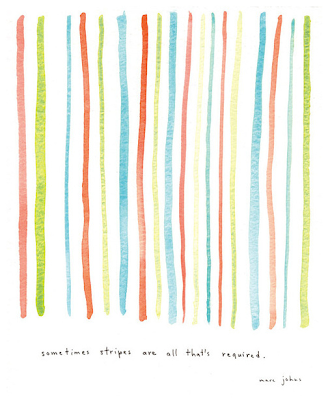 sometimes stripes are all that's required.
marc johns